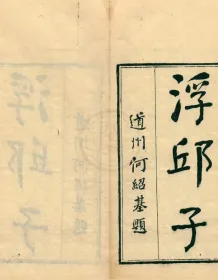 浮邱子
道州何紹基題